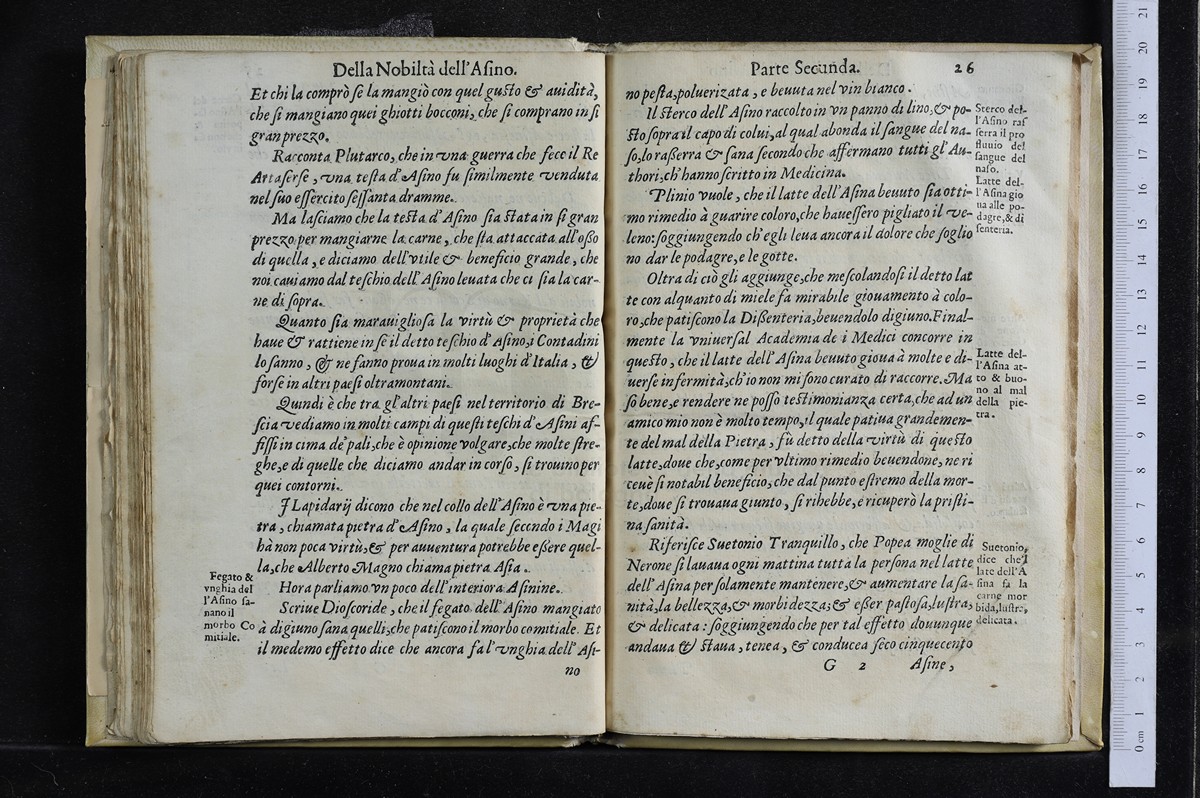 Della Nobiltà dell'Asino.
Et chi la comprò se la mangiò con quel gusto & auidità,
che si mangiano quei ghiotti bocconi, che si comprano in sì
gran prezzo.
Racconta Plutarco, che in vna guerra che fece il Re
Artaserse, vna testa d'Asino fu similmente venduta
nel suo essercito sessanta dramme.
Ma lasciamo che la testa d'Asino sia stata in sì gran
prezzo per mangiarne la carne, che sta attaccata all'osso
di quella, e diciamo dell'vtile & beneficio grande, che
noi cauiamo dal teschio dell'Asino leuata che ci sia la car-
ne di sopra.
Quanto sia marauigliosa la virtù & proprietà che
haue & rattiene in se il detto teschio d'Asino, i Contadini
lo sanno, & ne fanno proua in molti luoghi d'Italia, &
forse in altri paesi oltramontani.
Quindi è che tra gl'altri paesi nel territorio di Bre-
scia vediamo in molti campi di questi teschi d'Asini af-
fissi in cima de' pali, che è opinione volgare, che molte stre-
ghe, e di quelle che diciamo andar in corso, si trouino per
quei contorni.
I Lapidarij dicono che nel collo dell'Asino è vna pie-
tra, chiamata pietra d'Asino, la quale secondo i Magi
hà non poca virtù, & per auuentura potrebbe essere quel-
la, che Alberto Magno chiama pietra Asia.
Hora parliamo vn poco dell'interiora Asinine.
Scriue Dioscoride, che il fegato dell'Asino mangiato
à digiuno sana quelli, che patiscono il morbo comitiale. Et
il medemo effetto dice che ancora fa l'vnghia dell'Asi-
no
Fegato &
vnghia del
l'Asino sa-
nano il
morbo Co
mitiale.
Parte Secunda. 26
no pesta, poluerizata, e beuuta nel vin bianco.
Il sterco dell'Asino raccolto in vn panno di lino, & po-
sto sopra il capo di colui, al qual abonda il sangue del na-
so, lo rasserra & sana secondo che affermano tutti gl'Au-
thori, ch'hanno scritto in Medicina.
Plinio vuole, che il latte dell'Asina beuuto sia otti-
mo rimedio à guarire coloro, che hauessero pigliato il ve-
leno: soggiungendo ch'egli leua ancora il dolore che soglio
no dar le podagre, e le gotte.
Oltra di ciò gli aggiunge, che mescolandosi il detto lat
te con alquanto di miele fa mirabile giouamento à colo-
ro, che patiscono la Dissenteria, beuendolo digiuno. Final-
mente la vniuersal Academia de i Medici concorre in
questo, che il latte dell'Asina beuuto gioua à molte e di-
uerse infermità, ch'io non mi sono curato di raccorre. Ma
so bene, e rendere ne posso testimonianza certa, che ad un
amico mio non è molto tempo, il quale patiua grandemen-
te del mal della Pietra, fù detto della virtù di questo
latte, doue che, come per vltimo rimedio beuendone, ne ri
ceuè si notabil beneficio, che dal punto estremo della mor-
te, doue si trouaua giunto, si rihebbe, e ricuperò la pristi-
na sanità.
Riferisce Suetonio Tranquillo, che Popea moglie di
Nerone si lauaua ogni mattina tutta la persona nel latte
dell'Asina per solamente mantenere, & aumentare la sa-
nità, la bellezza, & morbidezza; & esser pastosa, lustra,
& delicata: soggiungendo che per tal effetto douunque
andaua & staua, tenea, & conducea seco cinquecento
G 2 Asine,
Sterco del-
l'Asino ras
serra il pro
fluuio del
sangue del
naso.
Latte del-
l'Asina gio
ua alle po-
dagre, & di
senteria.
Latte del-
l'Asina at-
to & buo-
no al mal
della pie-
tra.
Suetonio,
dice che'l
late dell'A
sina fa la
carne mor
bida, lustre,
delicata.